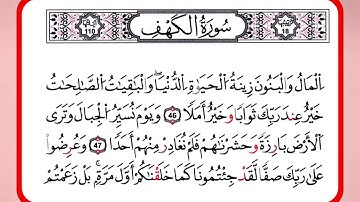 سُورَةُ الْكَهْفِ
اَلْمَالُ وَالْبَنُونَ زِينَةُ الْحَيٰوةِ الدُّنْيَاۖ وَالْبٰقِيٰتُ الصّٰلِحٰتُ
خَيْرٌ عِنْدَ رَبِّكَ ثَوَابًا وَخَيْرٌ اَمَلًا 46 وَيَوْمَ نُسَيِّرُ الْجِبَالَ وَتَرَى
الْاَرْضَ بَارِزَةً وَحَشَرْنٰهُمْ فَلَمْ نُغَادِرْ مِنْهُمْ اَحَدًا 47 وَعُرِضُوا
عَلٰى رَبِّكَ صَفًّا لَقَدْ جِئْتُمُونَا كَمَا خَلَقْنٰكُمْ اَوَّلَ مَرَّةٍ بَلْ زَعَمْتُمْ